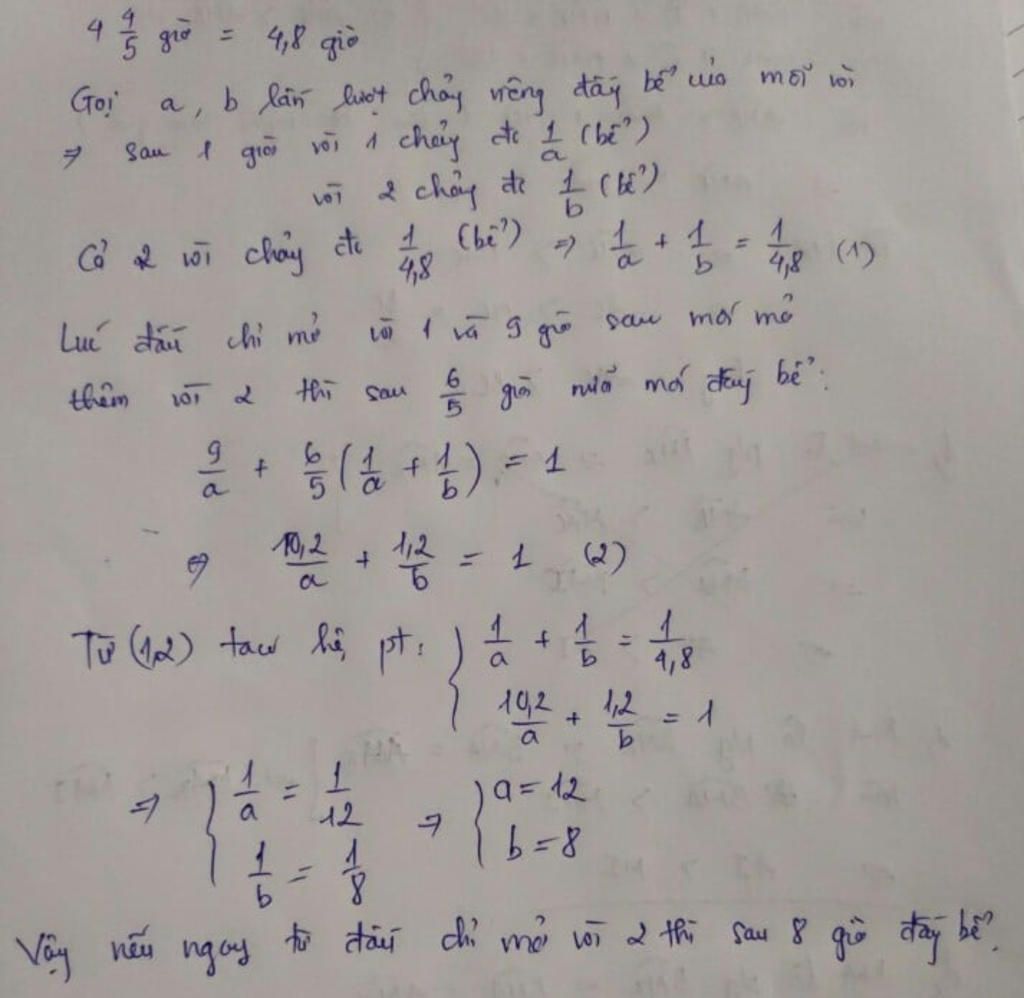 4 4/5 giờ = 4,8 giờ
Gọi a, b lần lượt chảy riêng đầy bể của mỗi vòi
⇒ sau 1 giờ vòi 1 chảy đc 1/a (bể)
vòi 2 chảy đc 1/b (bể)
Cả 2 vòi chảy đc 1/4,8 (bể) ⇒ 1/a + 1/b = 1/4,8 (1)
Lúc đầu chỉ mở vòi 1 và 9 giờ sau mới mở
thêm vòi 2 thì sau 6/5 giờ nữa mới đầy bể:
9/a + 6/5 (1/a + 1/b) = 1
⇔ 10,2/a + 1,2/b = 1 (2)
Từ (1,2) ta có hệ pt: { 1/a + 1/b = 1/4,8
10,2/a + 1,2/b = 1
⇒ { 1/a = 1/12 ⇒ { a = 12
1/b = 1/8 b = 8
Vậy nếu ngay từ đầu chỉ mở vòi 2 thì sau 8 giờ đầy bể.